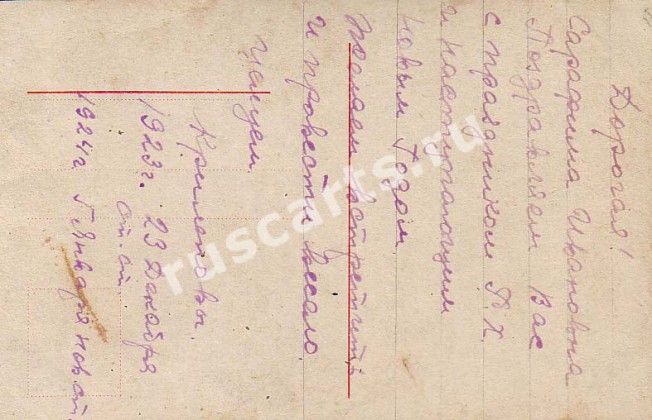 Дорогая!
Серафима Ивановна
Поздравляем Вас
с праздником Р. Х.
и наступающим
Новым Годом
Желаем встретить
и провести весело
Целуем.
1923 г. 23 Декабря
ст. ст
1924 г 5 Января нов ст.
ruscarts.ru